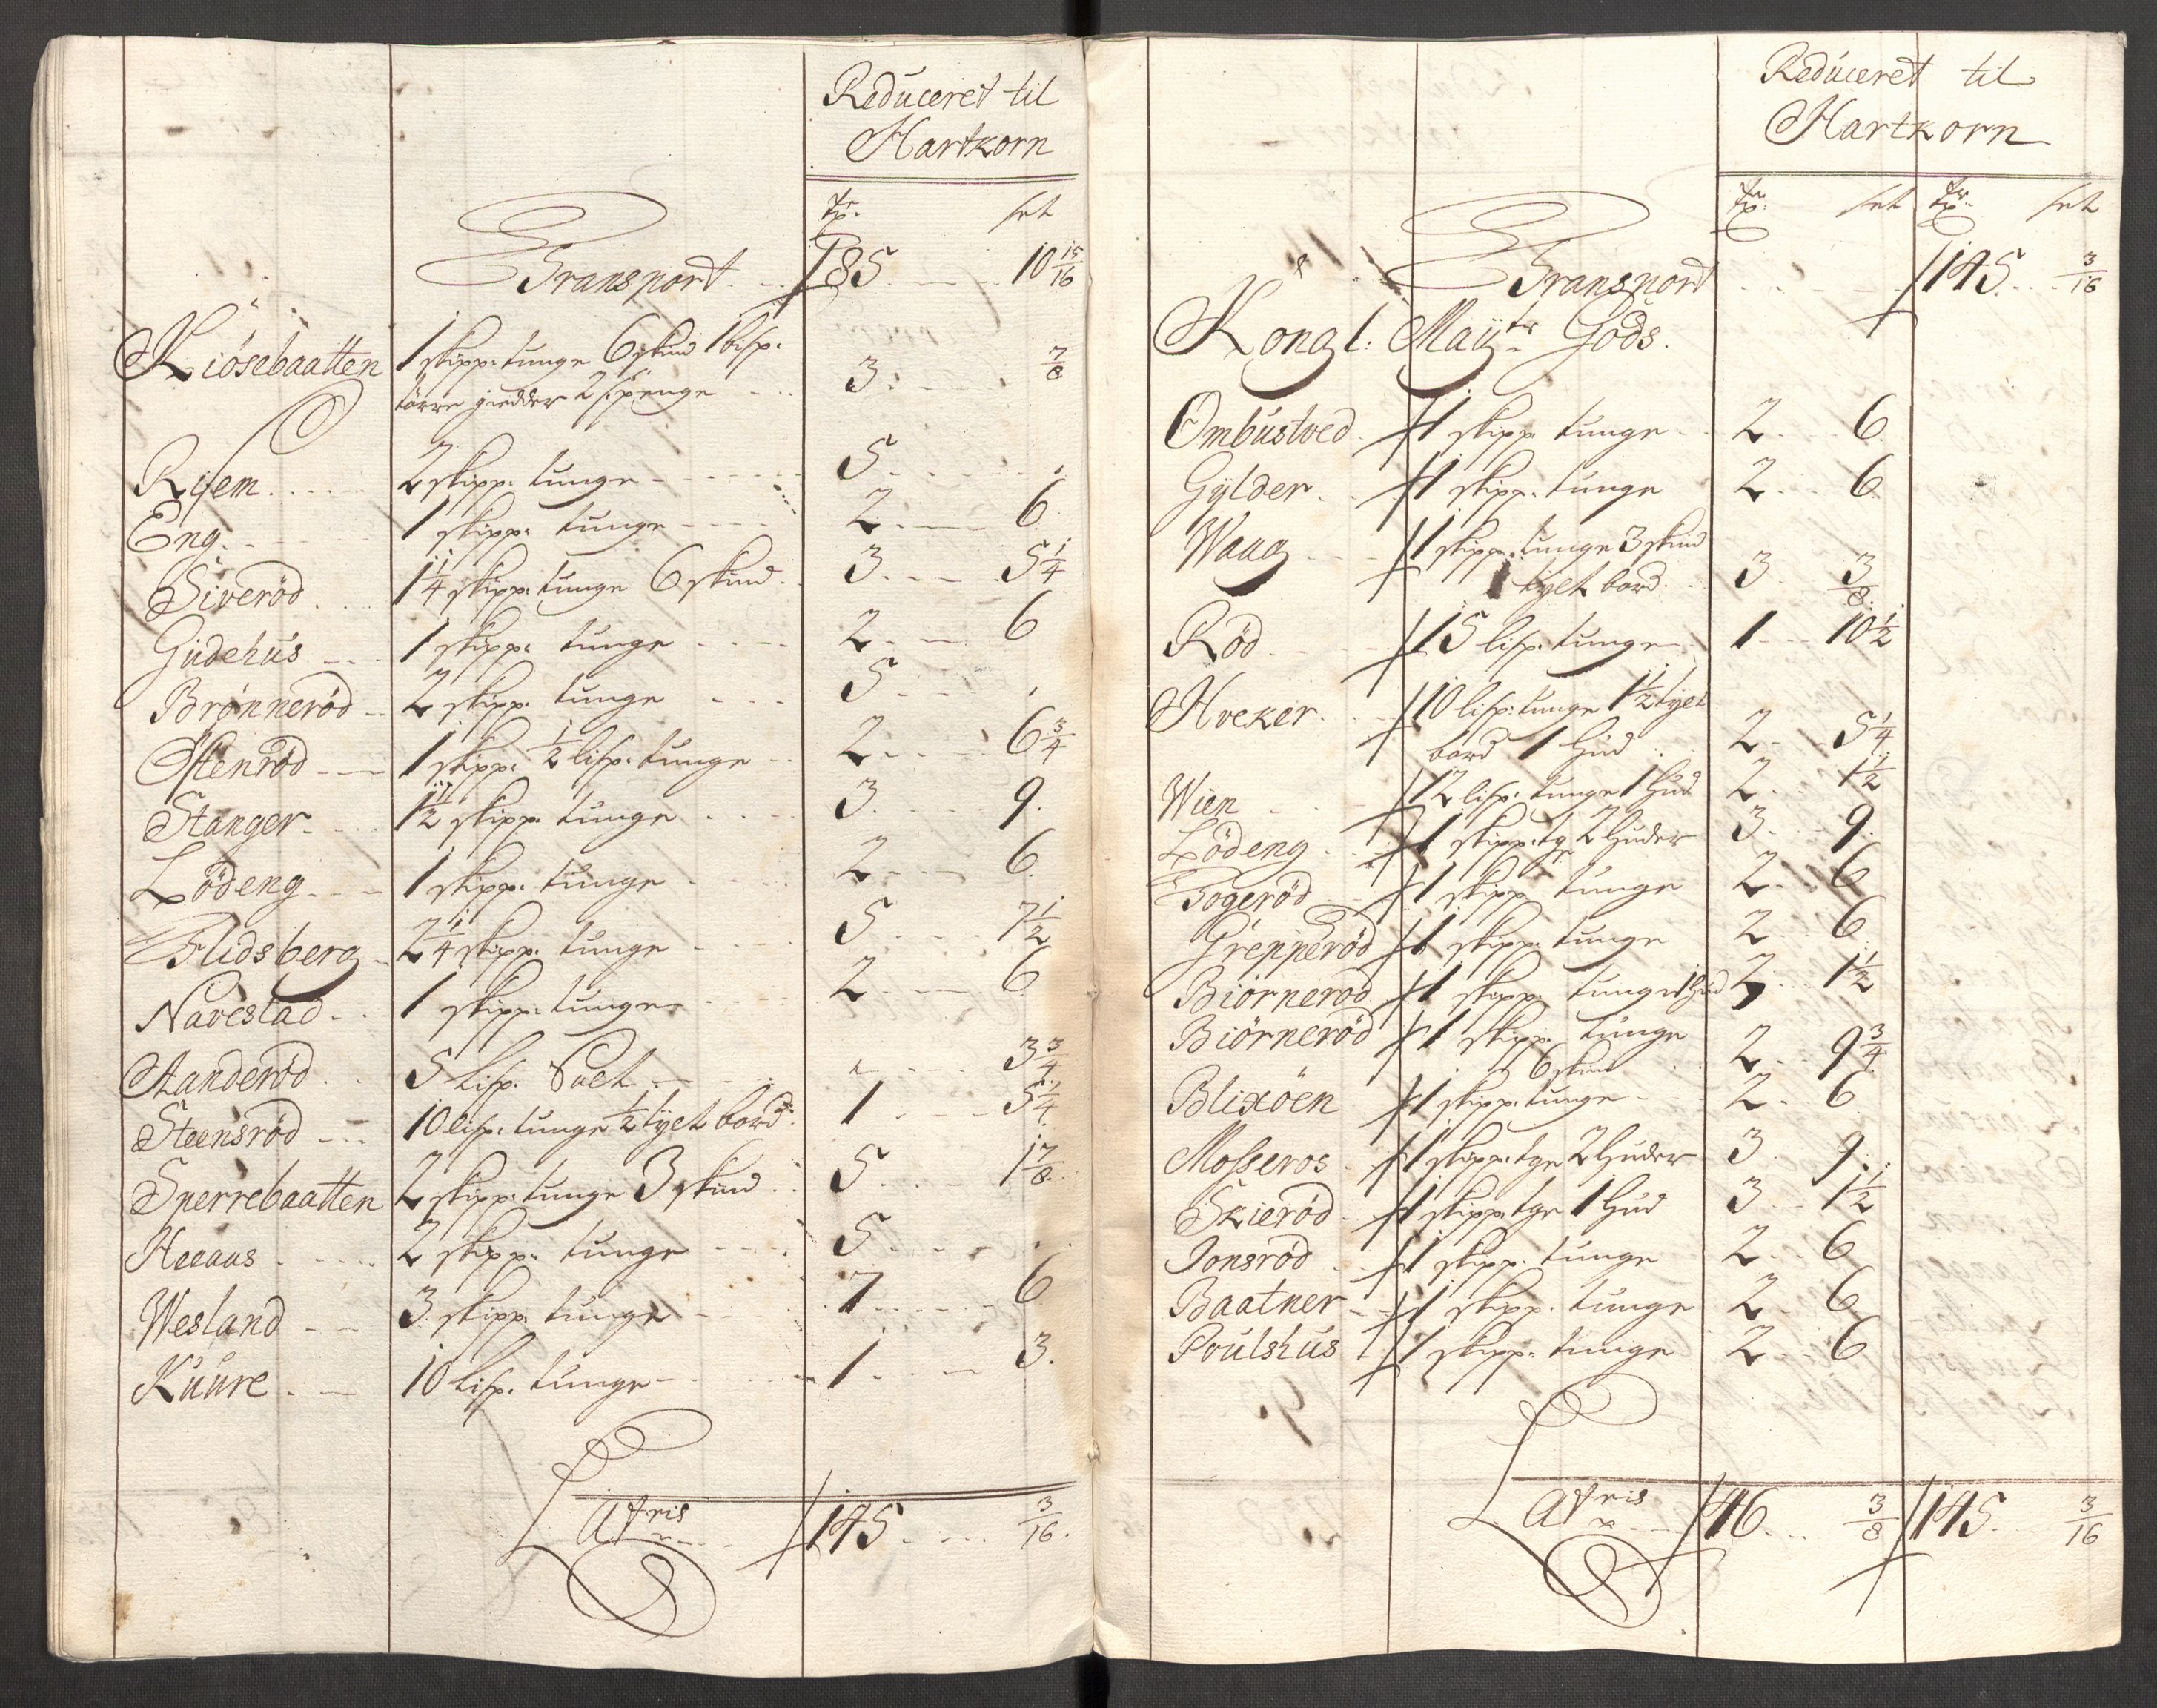 Reduceret til
Hartkorn
Tr. set
Transport. 85. 10 15/16
Kiösebaatten 1 skipp: tunge 6 skind 1 lisp.
törre giedder 2 s: penge 3. 7/8
Rijem 2 skipp. tunge 5.
Eng. 1 skipp: tunge 2. 6
Siveröd 1 1/4 skipp: tunge 6 skind. 3. 5 1/4
Gudehus 1 skipp: tunge 2. 6
Brönneröd 2 skipp. tunge 5.
Ostenröd 1 skipp. 1/2 lisp. tunge 2. 6 3/4
Stanger 1 1/2 skipp. tunge 3. 9.
Lödeng 1 skipp. tunge 2. 6.
Flidsberg 2 1/4 skipp. tunge 5. 7 1/2
Navestad 1 skipp: tunge 2. 6
Aanderöd 5 lisp. Salt 3 3/4
Steensröd 10 lisp: tunge 1/2 tylt bord. 1. 5 1/4
Sperrebaatten 2 skipp: tunge 3 skind 5. 1 7/8
Heeaas 2 skipp. tunge 5.
Wesland 3 skipp. tunge 7. 6
Kuure 10 lisp. tunge 1. 3.
Lateris 145. 3/16.
Reduceret til
Hartkorn
Tr. set Tr. set
Transport 145. 3/16
Kongl: Mayts Gods.
Ombustved 1 skipp tunge 2. 6.
Gylder 1 skipp. tunge 2. 6
Waag 1 skipp. tunge 3 skind
1 tylt bord. 3. 3/8
Röd 15 lisp. tunge 1. 10 1/2
Hveker. 10 lisp: tunge 1 1/2 tylt
bord 1 Hud 2. 5 1/4
Wien 12 lisp. tunge 1 Hud 2. 1 1/2
Lödeng 1 skipp. tge 2 Huder 3. 9.
Togeröd 1 skipp tunge 2. 6
Grepperöd 1 skipp. tunge 2. 6
Biörneröd 1 skipp. tunge 1 Hud 3. 1 1/2
Biörneröd 1 skipp. tunge
6 skind 2. 9 3/4
Blixöen 1 skipp. tunge 2. 6
Mosseros 1 skipp. tge 2 Huder 3. 9.
Skieröd 1 skipp. tge 1 Hud 3. 1 1/2
Jonsröd 1 skipp. tunge 2. 6
Baatner 1 skipp. tunge 2. 6
Poulshus 1 skipp. tunge 2. 6
Lateris 46. 3/8 145. 3/16